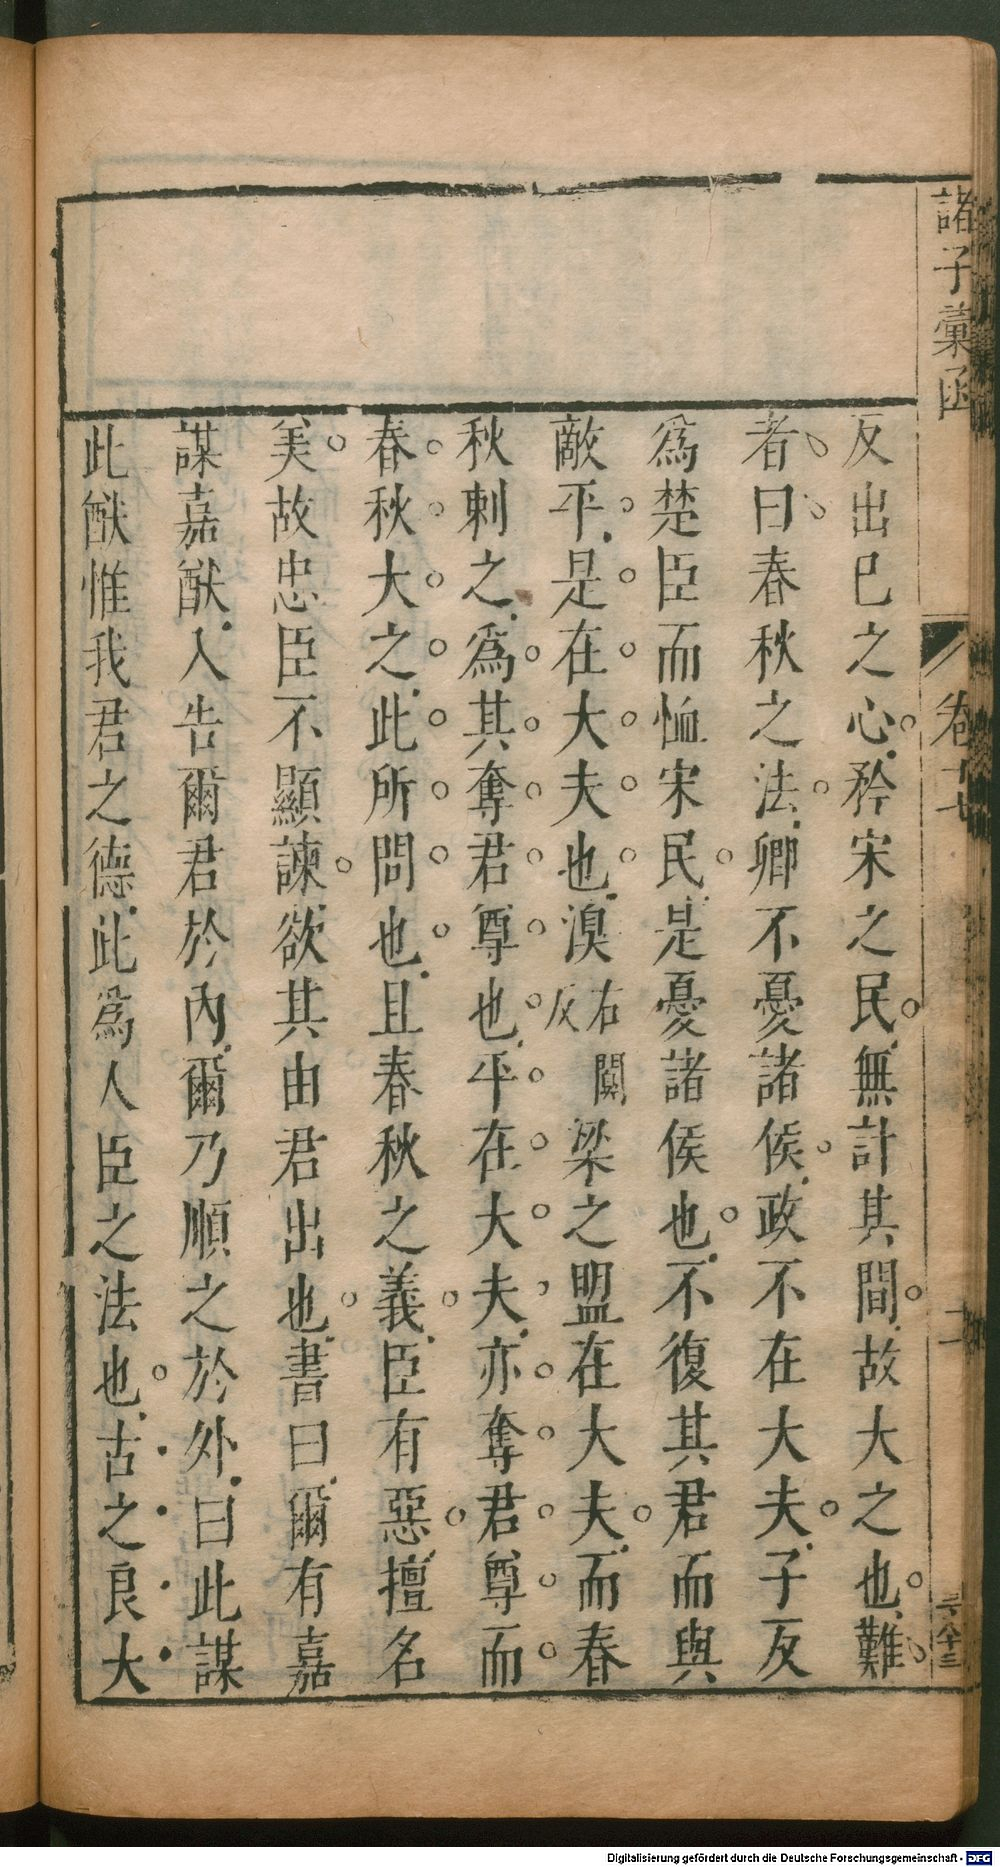 諸子彙函
卷十七
二
反出已之心矜宋之民無計其間故大之也難
者曰春秋之法卿不憂諸侯政不在大夫子反
爲楚臣而恤宋民是憂諸侯也不復其君而與
敵平是在大夫也溴右闃反梁之盟在大夫而春
秋刺之爲其奪君尊也平在大夫亦奪君尊而
春秋大之此所問也且春秋之義臣有惡擅名
美故忠臣不顯諫欲其由君出也書曰爾有嘉
謀嘉猷入告爾君於內爾乃順之於外曰此謀
此猷惟我君之德此爲人臣之法也古之良大
Digitalisierung gefördert durch die Deutsche Forschungsgemeinschaft - DFG